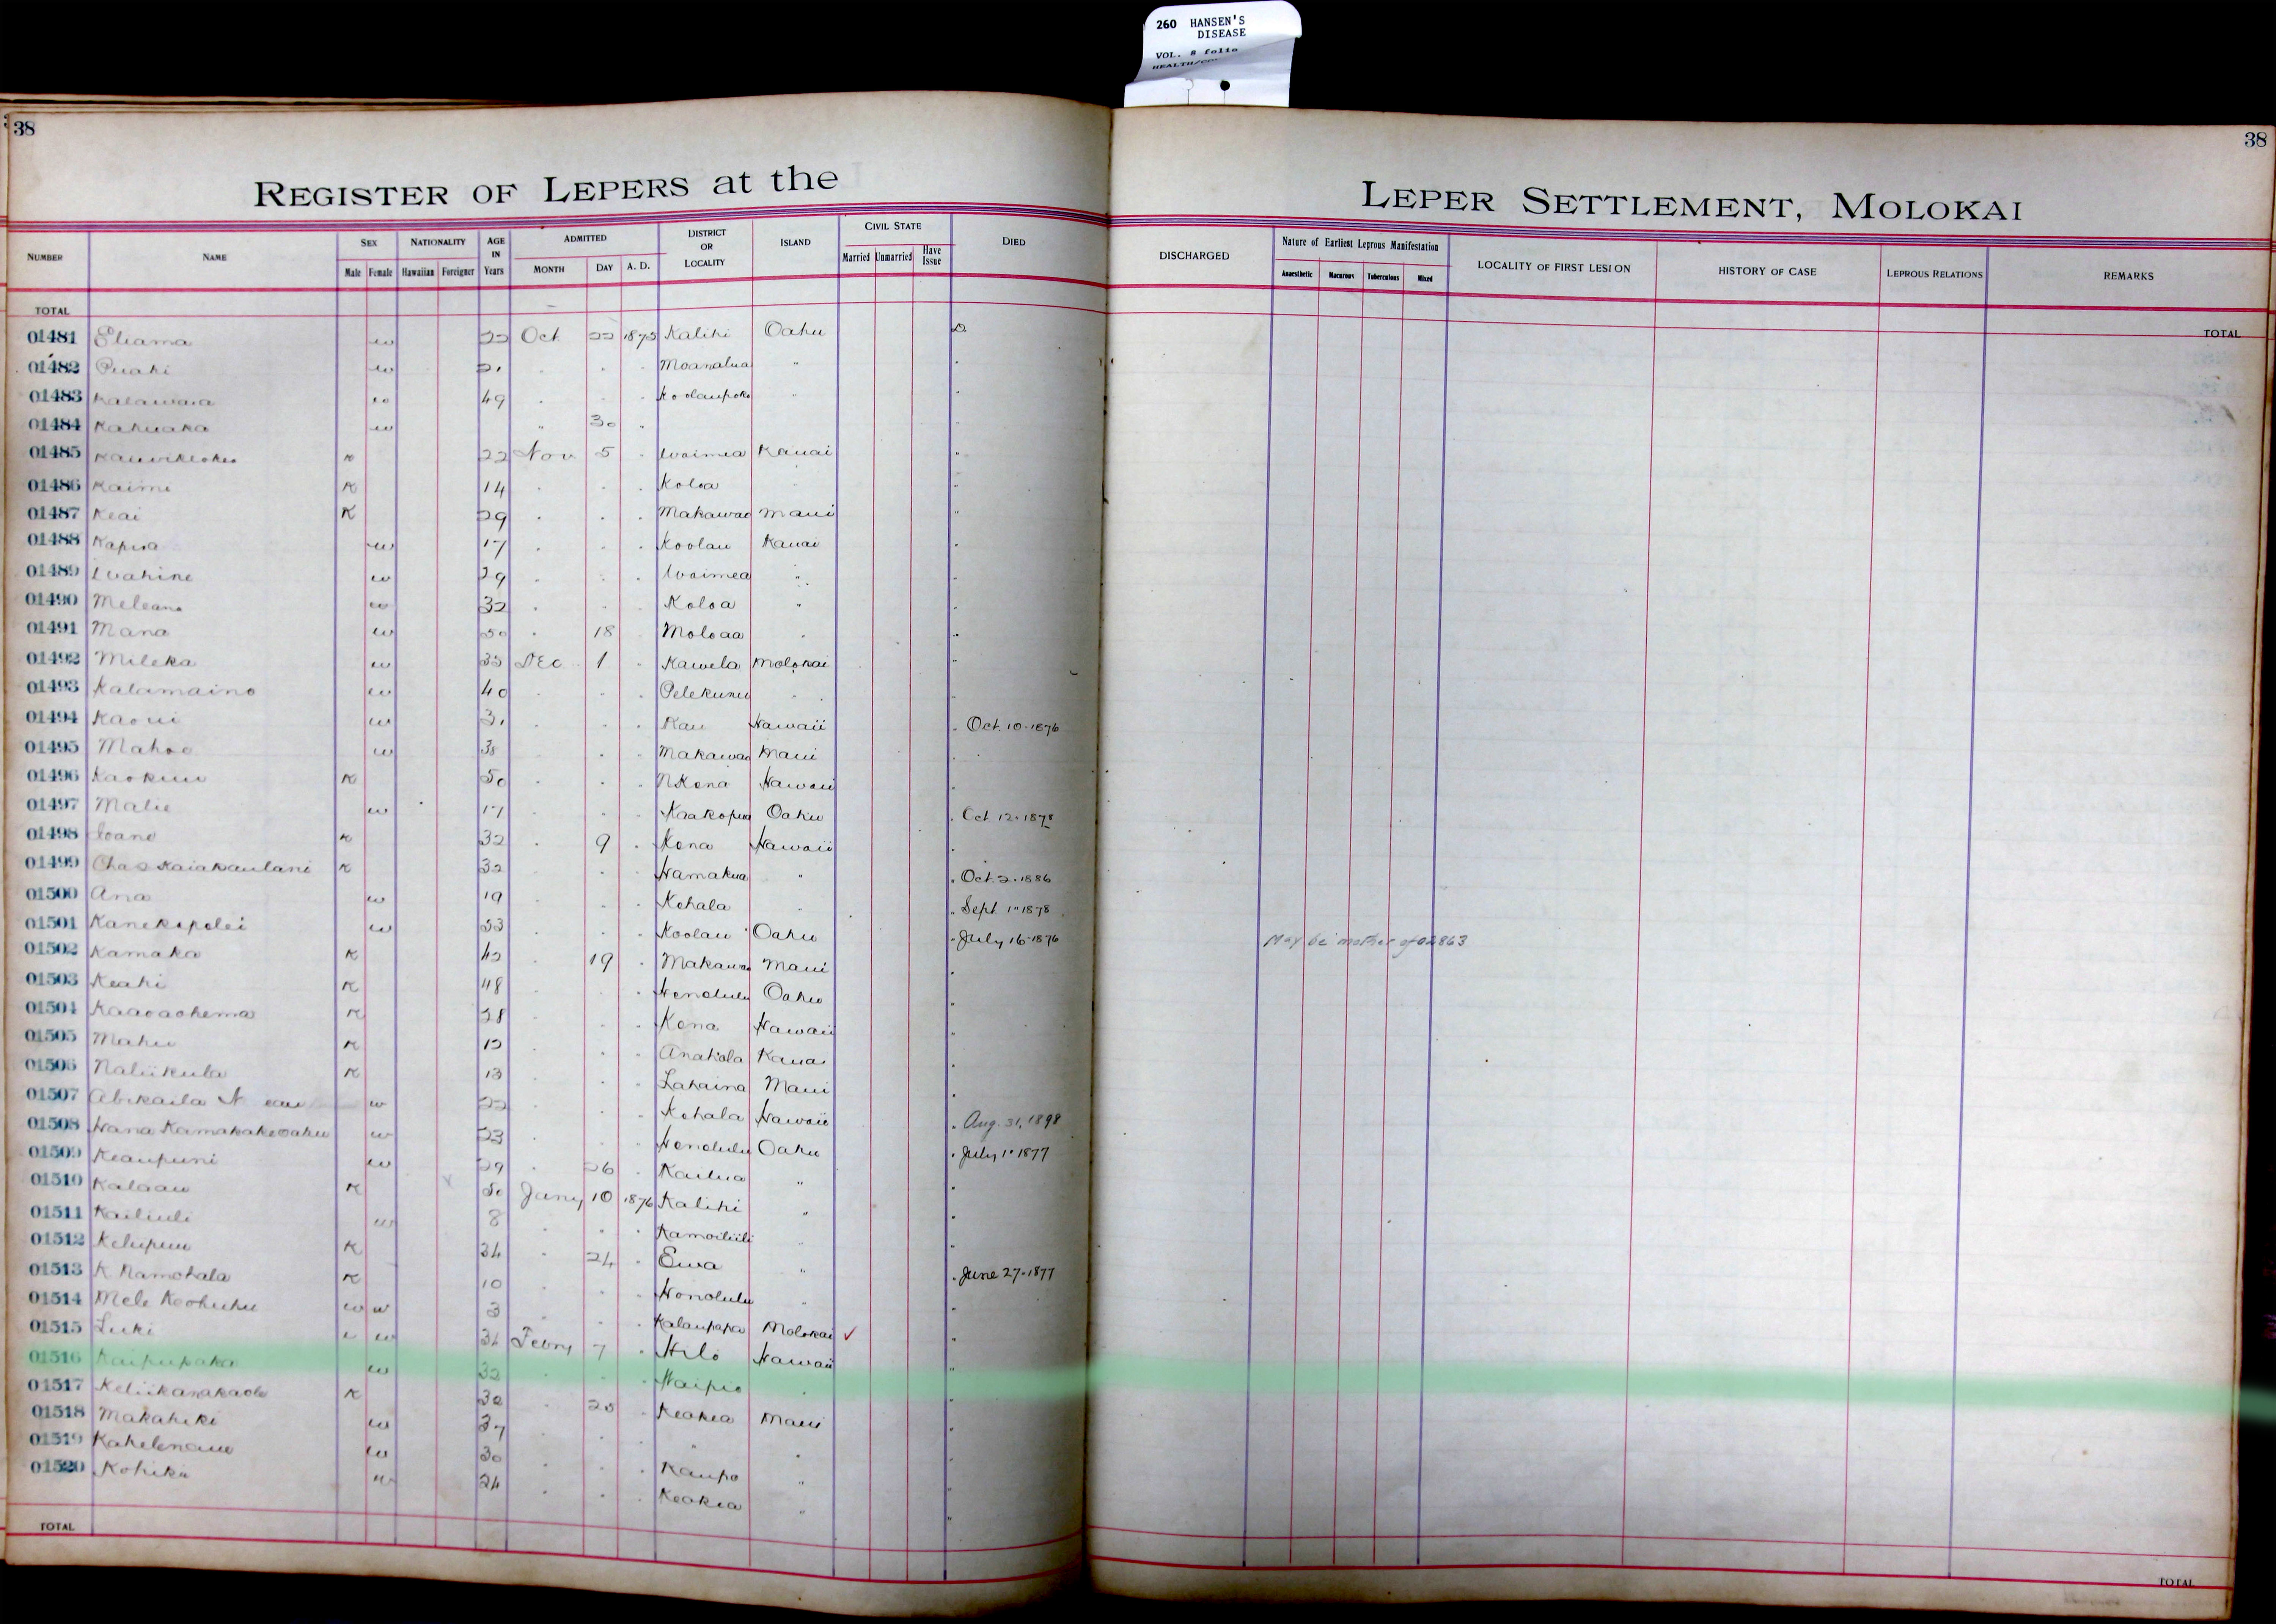 260 HANSEN'S
DISEASE
VOL. 8 folio
38
38
REGISTER OF LEPERS at the
LEPER SETTLEMENT, MOLOKAI
NUMBER NAME SEX Male Female NATIONALITY Hawaiian Foreigner AGE IN Years ADMITTED MONTH DAY A. D. DISTRICT OR LOCALITY ISLAND CIVIL STATE Married Unmarried Have Issue DIED
DISCHARGED Nature of Earliest Leprous Manifestation Anaesthetic Macurous Tuberculous Mixed LOCALITY OF FIRST LESION HISTORY OF CASE LEPROUS RELATIONS REMARKS
TOTAL
TOTAL
01481 Eliama w 22 Oct 22 1875 Kalihi Oahu D
01482 Puahi w 21 . . . Moanalua "
01483 Kalawaia w 49 . . . Koolaupoko "
01484 Kahuaka w " 30 "
01485 k 22 Nov 5 . Waimea Kauai "
01486 Kaimi K 14 . . . Koloa "
01487 Keai K 29 . . . Makawao Maui "
01488 Kapua w 17 . . . Koolau Kauai "
01489 Wahine w 29 . . . Waimea " "
01490 Meleana w 32 . . . Koloa " "
01491 Mana w 50 . 18 . Moloaa " "
01492 Mileka w 35 Dec 1 " Kawela Molokai "
01493 Kalamaino w 40 . . . Pelekunu " "
01494 Kaoui w 31 . . . Kau Hawaii " Oct. 10-1876
01495 Mahoe w 38 . . . Makawao Maui "
01496 Kaokuu K 50 . . . N Kona Hawaii "
01497 Malie w 17 . . . Kaakopua Oahu " Oct 12-1878
01498 Ioane K 32 . 9 . Kona Hawaii "
01499 Chas Kaiakaulani K 32 . . . Hamakua " " Oct. 2-1886
01500 Ana w 19 . . . Kohala " " Sept 1-1878
01501 Kanekapolei w 53 . . . Koolau Oahu " July 16-1876 May be mother of 02863
01502 Kamaka K 42 . 19 . Makawao Maui "
01503 Keahi K 48 . . . Honolulu Oahu "
01504 Kaaoaohema K 28 . . . Kona Hawaii "
01505 Mahu K 12 . . . Anahola Kauai "
01506 Naliikula K 13 . . . Lahaina Maui "
01507 Abikaila w 22 . . . Kohala Hawaii " Aug. 31, 1898
01508 Hana Kamakakeoahu w 23 . . . Honolulu Oahu " July 1-1877
01509 Keaupuni w 29 . 26 . Kailua " "
01510 Kalaau K 50 Jany 10 1876 Kalihi " "
01511 Kailiuli w 8 . . . Kamoiliili " "
01512 Kelupuu K 34 . 24 . Ewa " " June 27-1877
01513 K Namohala K 10 . . . Honolulu " "
01514 Mele Keohuhu w w 3 . . . Kalaupapa Molokai ✓ "
01515 Luki w 34 Febry 7 . Hilo Hawaii "
01516 Kaipupaka w 32 . . . Waipio " "
01517 Keliikanakaole K 30 . 25 . Keokea Maui "
01518 Makahiki w 37 . . . " " "
01519 Kahelenaue w 30 . . . Kaupo " "
01520 Kohika w 24 . . . Keokea " "
TOTAL
TOTAL